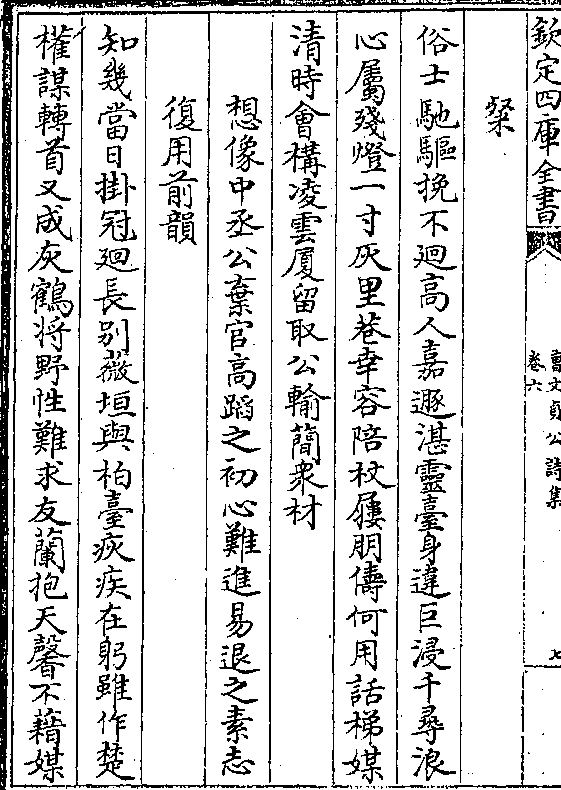 欽定四庫全書
曹文貞公詩集
卷六
七
粲
俗士馳驅挽不廻高人嘉遯湛靈臺身違巨浸千尋浪
心屬殘燈一寸灰里巷幸容陪杖屨朋儔何用話梯媒
清時會構凌雲厦留取公輸簡衆材
想像中丞公棄官高蹈之初心難進易退之素志
復用前韻
知幾當日掛冠廻長别薇垣與柏臺疢疾在躬雖作楚
權謀轉首又成灰鶴将野性難求友蘭抱天馨不藉媒